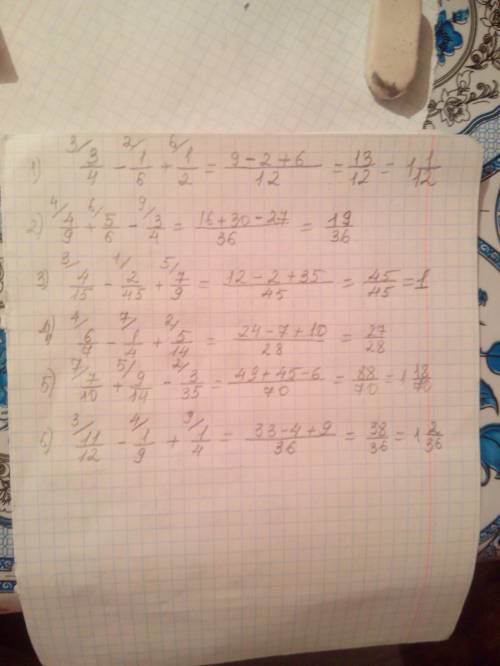 1) ³⁄ 3/4 - ²⁄ 1/6 + ⁶⁄ 1/2 = (9-2+6)/12 = 13/12 = 1 1/12
2) ⁴⁄ 4/9 + ⁶⁄ 5/6 - ⁹⁄ 3/4 = (16+30-27)/36 = 19/36
3) ³⁄ 4/15 - ¹⁄ 2/45 + ⁵⁄ 7/9 = (12-2+35)/45 = 45/45 = 1
4) ⁴⁄ 6/7 - ⁷⁄ 1/4 + ²⁄ 5/14 = (24-7+10)/28 = 27/28
5) ⁷⁄ 7/10 + ⁵⁄ 9/14 - ²⁄ 3/35 = (43+45-6)/70 = 88/70 = 1 18/70
6) ³⁄ 11/12 - ⁴⁄ 1/9 + ⁹⁄ 1/4 = (33-4+9)/36 = 38/36 = 1 2/36